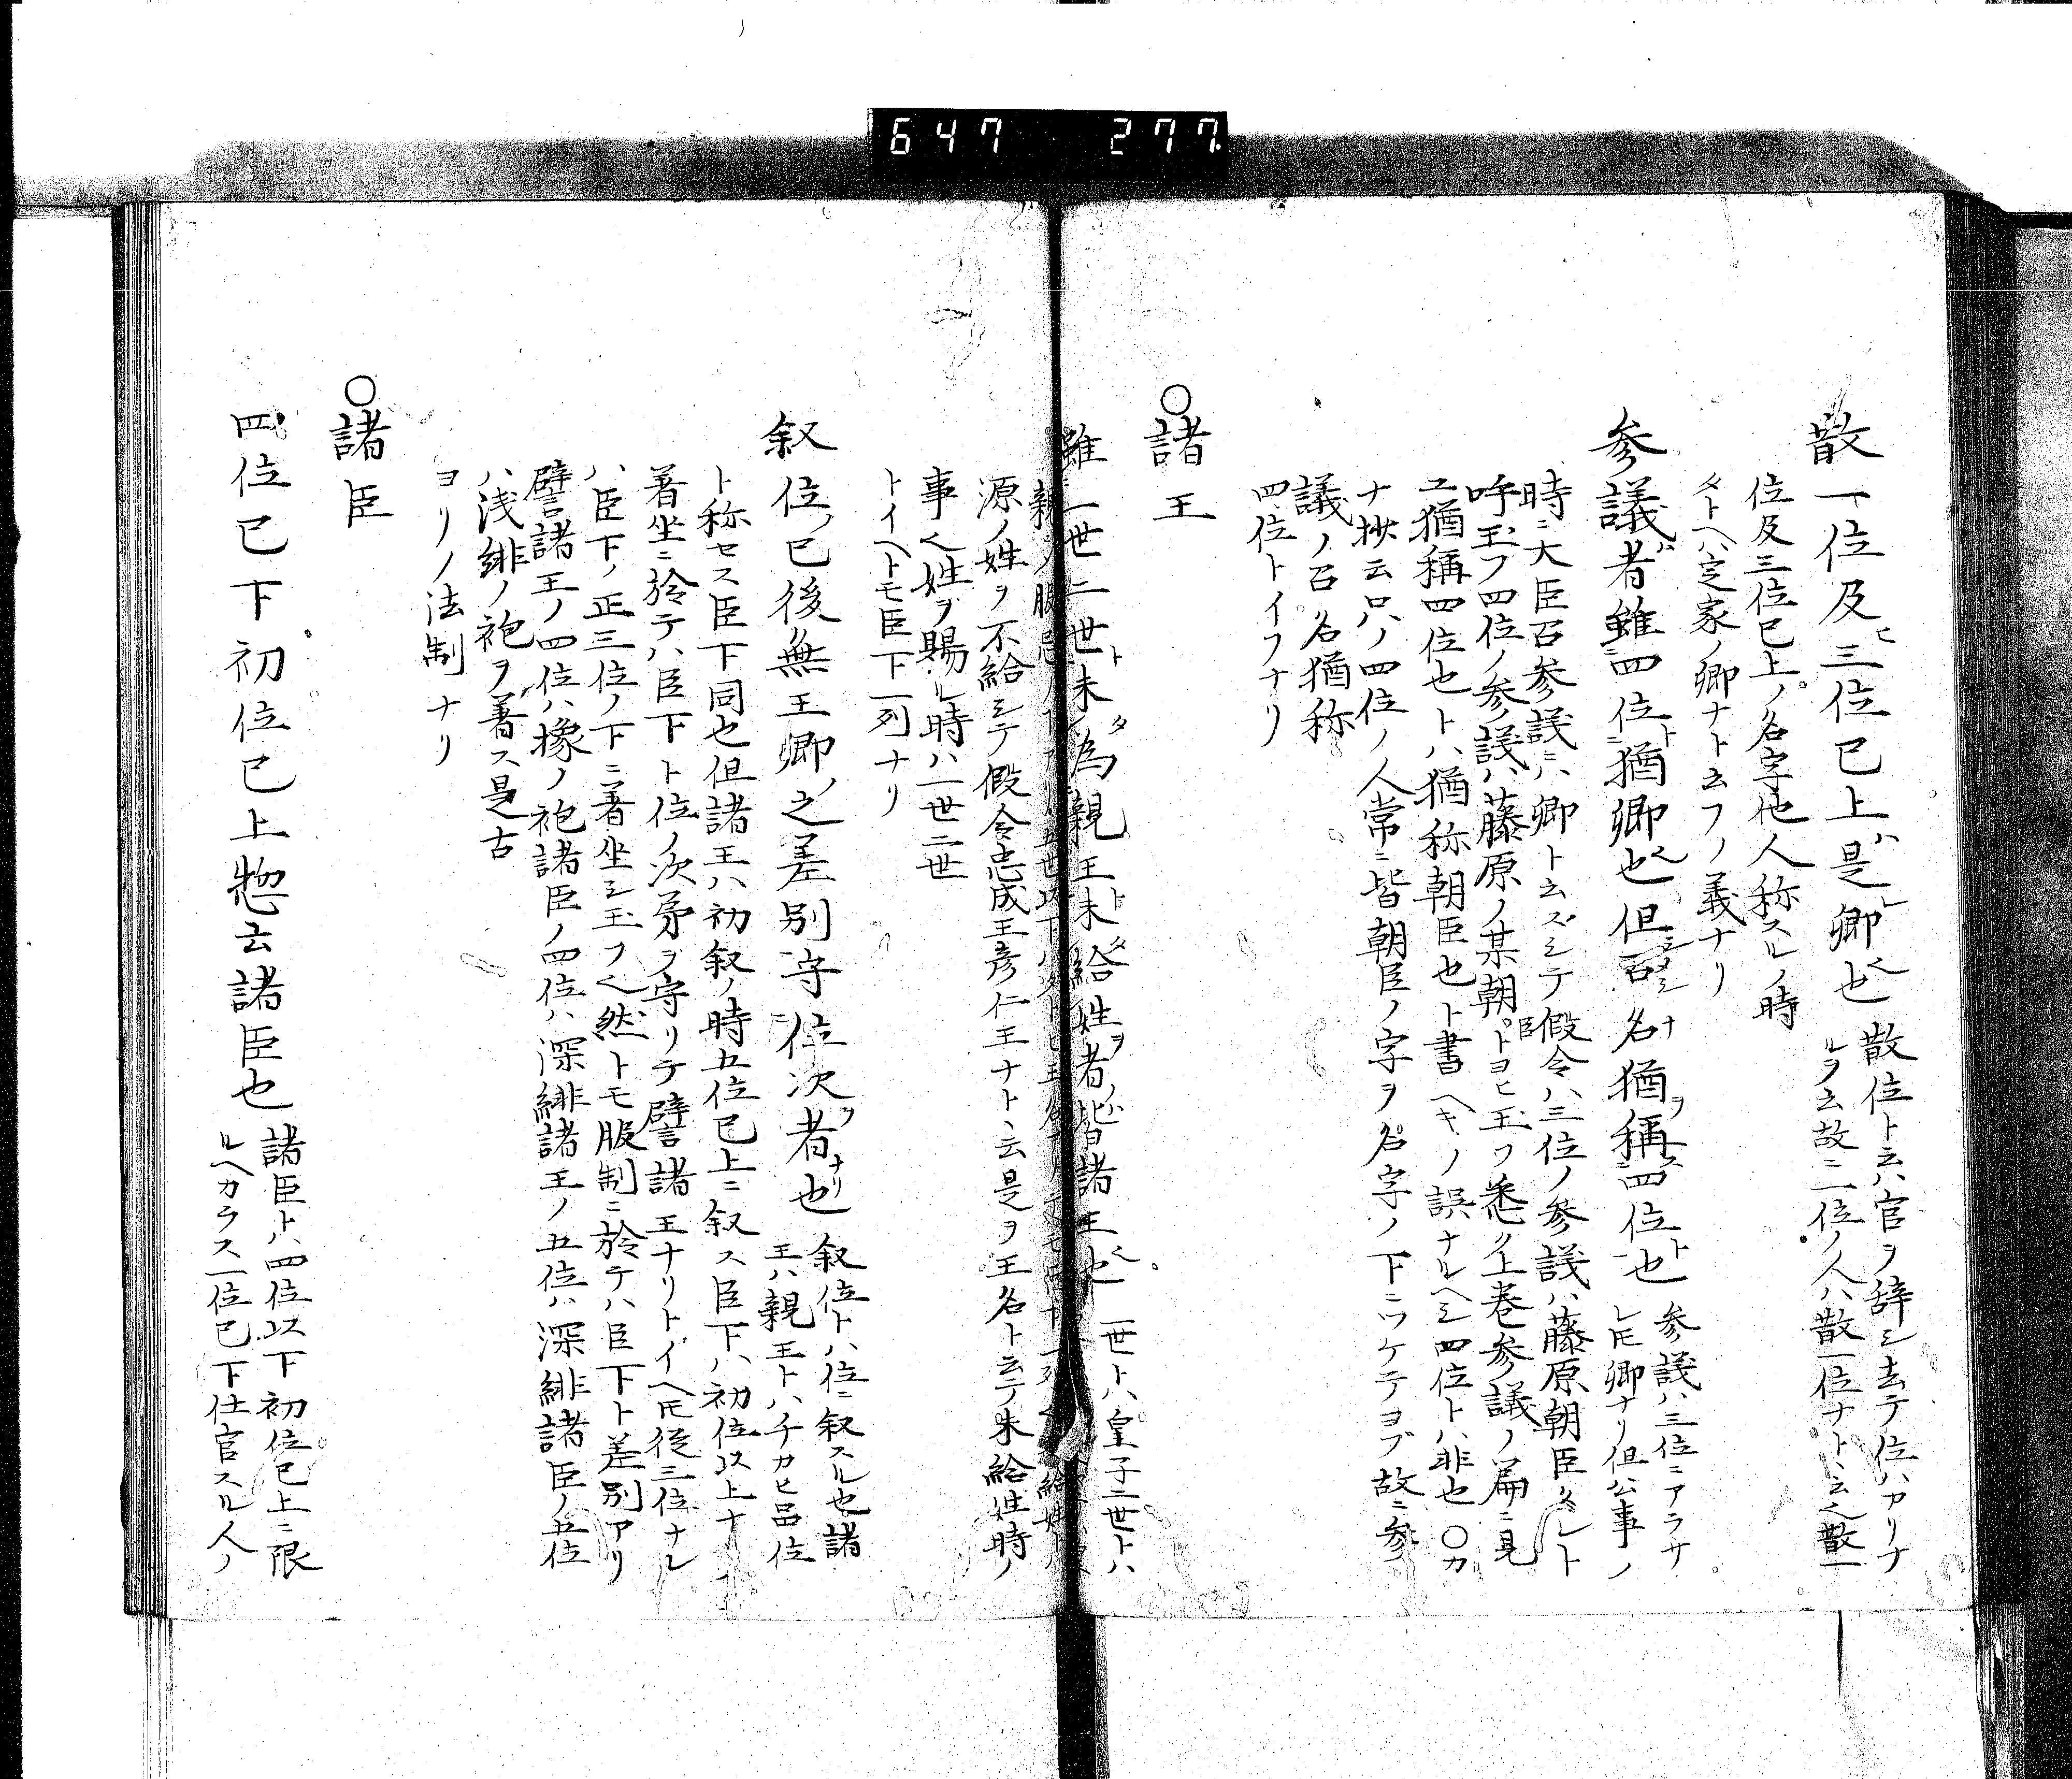 647 277.
散一位及ヒ三位已上ハ是レ卿也
散位ト云ハ官ヲ辞シ去テ位ハカリナ
ルヲ云故ニ一位ノ人ハ散一位ナト、云也散一
位及三位已上ノ名字他人称スルノ時
タトヘハ定家ノ卿ナト云フノ義ナリ
参議者雖四位ト猶卿也但召名猶稱四位ト也
参議ハ三位ニアラサ
レトモ卿ナリ但公事ノ
時ニ大臣召参議ニハ卿ト云ズシテ假令ハ三位ノ参議ハ藤原朝臣タレト
呼玉フ四位ノ参議ハ藤原ノ某朝臣トヨヒ玉フ悉ク上巻参議ノ篇ニ見
ユ猶稱四位也トハ猶称朝臣也ト書ヘキノ誤ナルヘシ四位トハ非也〇カ
ナ抄云只ノ四位ノ人常ニ皆朝臣ノ字ヲ名字ノ下ニツケテヨブ故ニ参
議ノ召名猶称
四位トイフナリ
〇諸王
雖一世二世ト未タ為親王ト未タ給姓ヲ者ノハ皆諸王也
一世トハ皇子二世トハ
源ノ姓ヲ不給シテ假令忠成王彦仁王ナト、云是ヲ王名ト云テ未給姓時ノ
事也姓ヲ賜ル時ハ一世二世
トイヘトモ臣下一列ナリ
叙位ノ已後ハ無王卿ノ之差別守位次ヲ者ナリ也
叙位トハ位ニ叙スル也諸
王ハ親王トハチカヒ品位
ト称セス臣下同也但諸王ハ初叙ノ時五位已上ニ叙ス臣下ハ初位以上ナリ
著坐ニ於テハ臣下ト位ノ次第ヲ守リテ譬諸王ナリトイヘトモ従三位ナレ
ハ臣下ノ正三位ノ下ニ著坐シ玉フ也然トモ服制ニ於テハ臣下ト差別アリ
譬諸王ノ四位ハ橡ノ袍諸臣ノ四位ハ深緋諸王ノ五位ハ深緋諸臣ノ五位
ハ浅緋ノ袍ヲ著ス是古
ヨリノ法制ナリ
〇諸臣
四位已下初位已上惣云諸臣也
諸臣トハ四位以下初位已上ニ限
ルヘカラス一位已下仕官スル人ノ